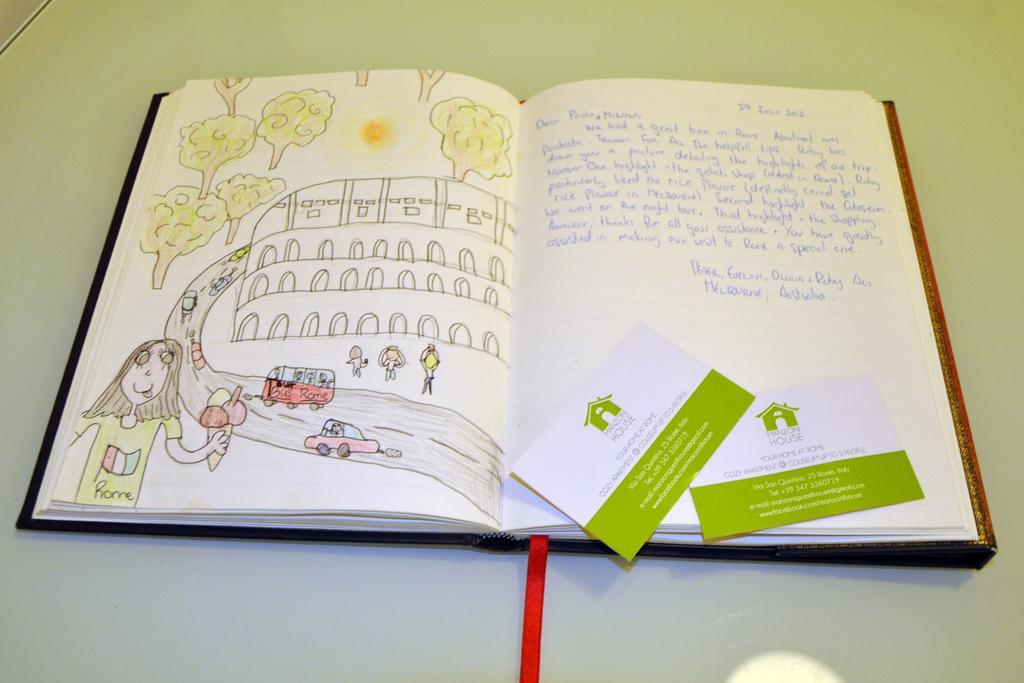 Rome
Bus Rome
29 July 2012
Dear Paola,
We had a great time in Rome. Apartment was
fantastic. for all the helpful tips. Ruby has
drawn you a picture detailing the highlights of our trip.
Number One highlight - the gelati shop (oldest in Rome). Ruby
particularly liked the rice flavour (definitely cannot get
rice flavour in Melbourne). Second highlight - the Coloseum.
We went on the night tour. Third highlight - the shopping.
thanks for all your assistance. You have greatly
assisted in making our visit to Rome a special one.
Peter, Evelyn, Olivia + Ruby Ali
Melbourne, Australia.
MANZONI
HOUSE
YOUR HOME AT ROME
COZY APARTMENT @ COLISEUM UP TO 5 PEOPLE
Via San Quintino, 25 Rome, Italy
Tel. +39 347 3360719
e-mail: manzoniguesthouse@gmail.com
www.facebook.com/manzonihouse
MANZONI
HOUSE
YOUR HOME AT ROME
COZY APARTMENT @ COLISEUM UP TO 5 PEOPLE
Via San Quintino, 25 Rome, Italy
Tel. +39 347 3360719
e-mail: manzoniguesthouse@gmail.com
www.facebook.com/manzonihouse